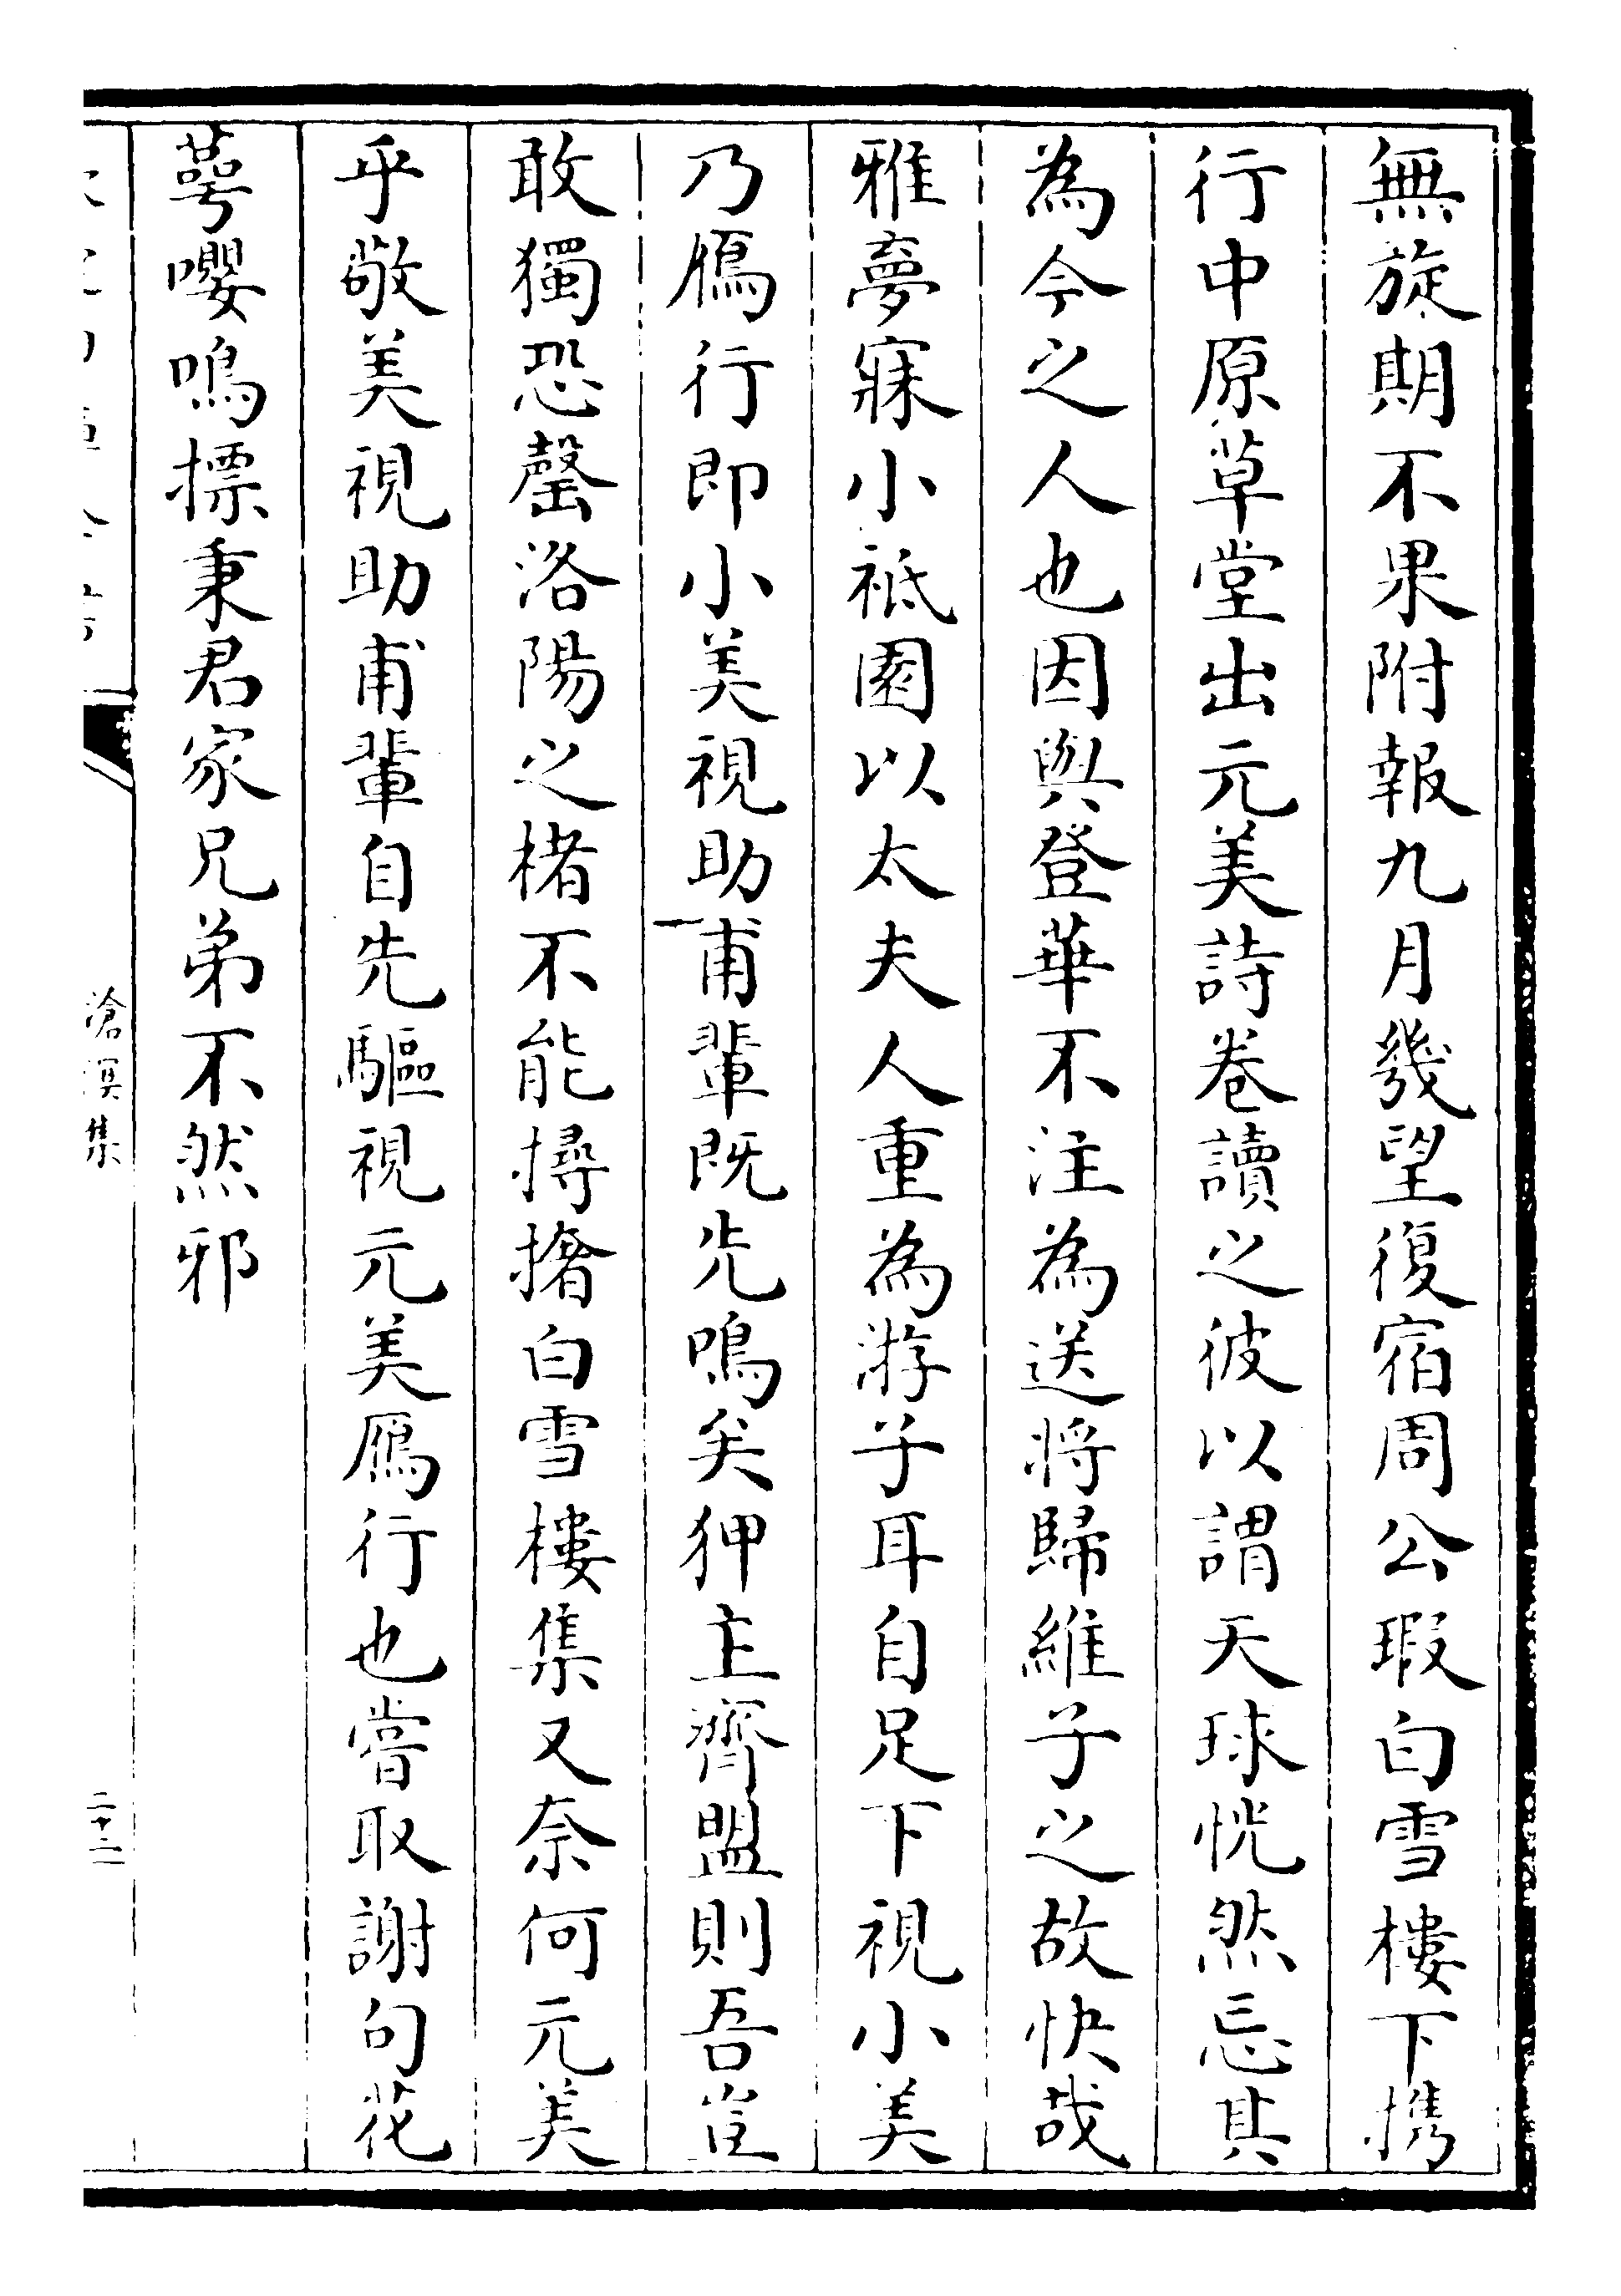 無旋期不果附報九月幾望復宿周公瑕白雪樓下携
行中原草堂出元美詩卷讀之彼以謂天球恍然忘其
為今之人也因與登華不注為送将歸維子之故快哉
雅夢寐小祗園以太夫人重為游子耳自足下視小美
乃鴈行即小美視助甫輩既先鳴矣狎主齊盟則吾豈
敢獨恐罄洛陽之楮不能撏撦白雪樓集又奈何元美
乎敬美視助甫輩自先驅視元美鴈行也嘗取謝句花
萼嚶鳴摽秉君家兄弟不然邪
滄溟集
二十二